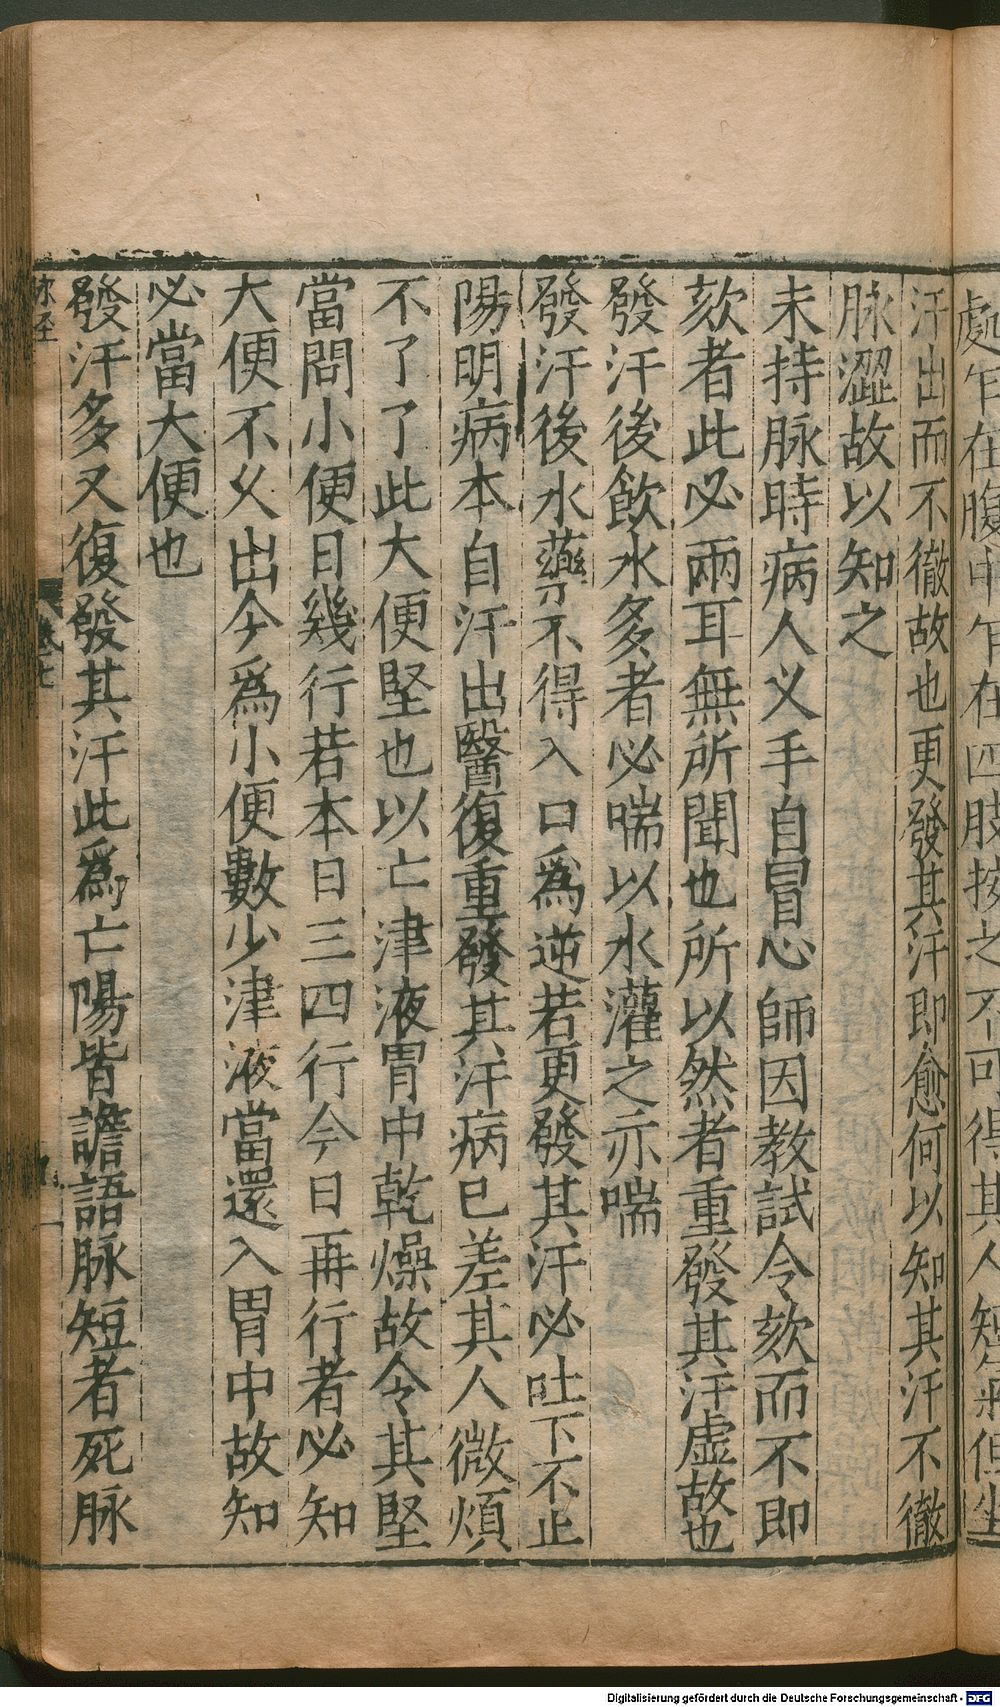 處乍在腹中乍在四肢按之不可得其人短氣但坐
汗出而不徹故也更發其汗即愈何以知其汗不徹
脉澀故以知之
未持脉時病人义手自冒心師因教試令欬而不即
欬者此必兩耳無所聞也所以然者重發其汗虛故也
發汗後飲水多者必喘以水灌之亦喘
發汗後水藥不得入口爲逆若更發其汗必吐下不止
陽明病本自汗出醫復重發其汗病已差其人微煩
不了了此大便堅也以亡津液胃中乾燥故令其堅
當問小便日幾行若本日三四行今日再行者必知
大便不乆出今爲小便數少津液當還入胃中故知
必當大便也
發汗多又復發其汗此爲亡陽皆譫語脉短者死脉
脉經
卷七
Digitalisierung gefördert durch die Deutsche Forschungsgemeinschaft - DFG